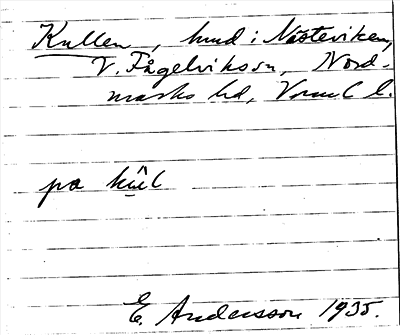 Kullen, hmd i Nästeviken,
V. Fågelvikson, Nord-
marks hd, Vrml l.
på kül
E. Andersson 1935.